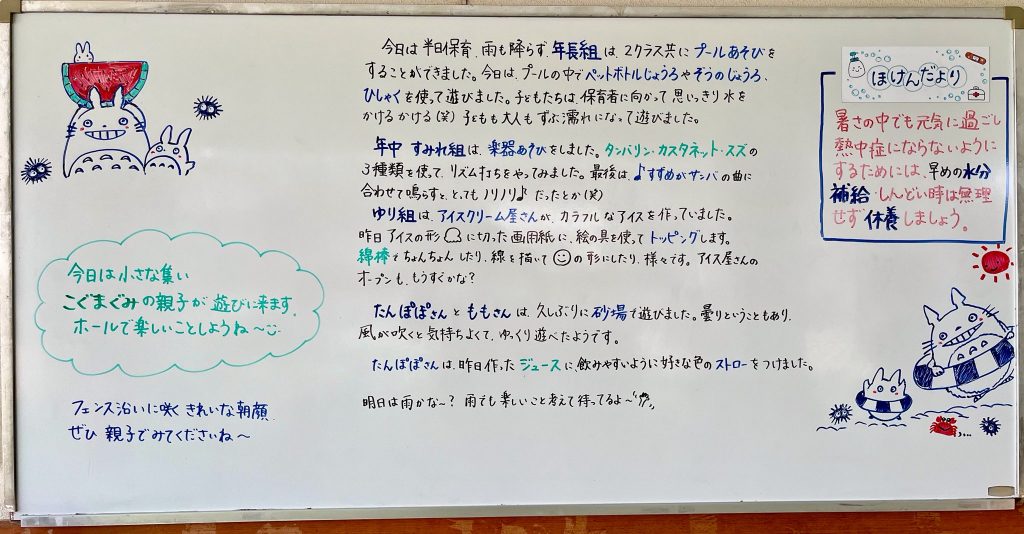 今日は半日保育、雨も降らず、年長組は、2クラス共にプールあそびを
することができました。今日は、プールの中でペットボトルじょうろやぞうのじょうろ、
ひしゃくを使って遊びました。子どもたちは、保育者に向かって思いっきり水を
かけるかける(笑)子どもも大人もずぶ濡れになって遊びました。
年中 すみれ組は、楽器あそびをしました。タンバリン・カスタネット・スズの
3種類を使って、リズム打ちをやってみました。最後は、♪すずめがサンバの曲に
合わせて鳴らすと、とってもノリノリ♪だったとか(笑)
ゆり組は、アイスクリーム屋さんが、カラフルなアイスを作っていました。
昨日アイスの形に切った画用紙に、絵の具を使ってトッピングします。
綿棒でちょんちょんしたり、線を描いての形にしたり、様々です。アイス屋さんの
オープンも、もうすぐかな?
たんぽぽさんとももさんは、久しぶりに砂場で遊びました。曇りということもあり、
風が吹くと気持ちよくて、ゆっくり遊べたようです。
たんぽぽさんは、昨日作ったジュースに、飲みやすいように好きな色のストローをつけました。
明日は雨かな~?雨でも楽しいこと考えて待ってるよ~
今日は小さな集い
こぐまぐみの親子が遊びに来ます。
ホールで楽しいことしようね~
フェンス沿いに咲くきれいな朝顔
ぜひ親子でみてくださいね~
ほけんだより
暑さの中でも元気に過ごし
熱中症にならないように
するためには、早めの水分
補給・しんどい時は無理
せず休養しましょう。